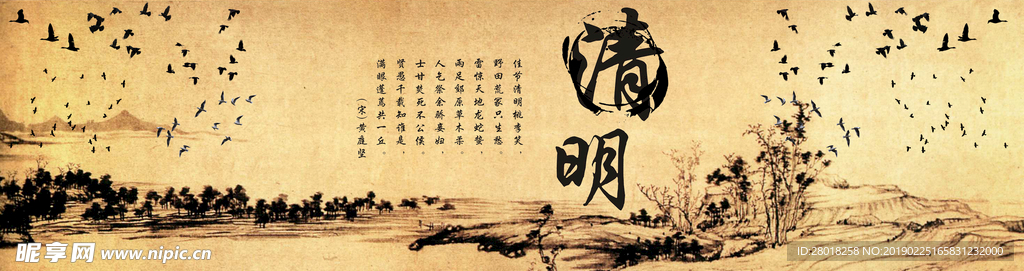 清明
佳节清明桃李笑，
野田荒冢只生愁。
雷惊天地龙蛇蛰，
雨足郊原草木柔。
人乞祭余骄妾妇，
士甘焚死不公侯。
贤愚千载知谁是，
满眼蓬蒿共一丘。
（宋）黄庭坚
昵享网 www.nipic.cn
ID:28018258 NO:20190225165831232000